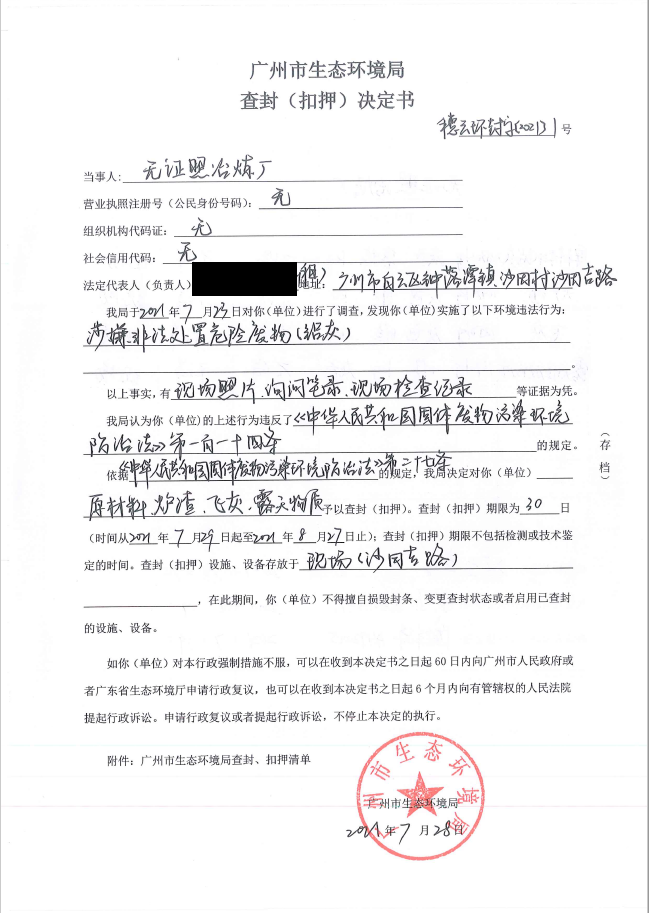 广州市生态环境局
查封（扣押）决定书
穗云环封字(2021)1号
当事人：无证照冶炼厂
营业执照注册号（公民身份号码）：无
组织机构代码证：无
社会信用代码：无
法定代表人（负责人） 地址：广州市白云区钟落潭镇沙田村沙田吉路
我局于2021年7月23日对你(单位)进行了调查，发现你(单位)实施了以下环境违法行为：
涉嫌非法处置危险废物(铝灰)
。
以上事实，有现场照片、询问笔录、现场检查记录等证据为凭。
我局认为你(单位)的上述行为违反了《中华人民共和国固体废物污染环境
防治法》第一百一十四条的规定。
依据《中华人民共和国固体废物污染环境防治法》第二十七条的规定，我局决定对你（单位）
原材料、炉渣、飞灰、露天物质予以查封（扣押）。查封（扣押）期限为30日
（时间从2021年7月29日起至2021年8月27日止）；查封（扣押）期限不包括检测或技术鉴
定的时间。查封（扣押）设施、设备存放于现场(沙田吉路)
，在此期间，你（单位）不得擅自损毁封条、变更查封状态或者启用已查封
的设施、设备。
如你（单位）对本行政强制措施不服，可以在收到本决定书之日起60日内向广州市人民政府或
者广东省生态环境厅申请行政复议，也可以在收到本决定书之日起6个月内向有管辖权的人民法院
提起行政诉讼。申请行政复议或者提起行政诉讼，不停止本决定的执行。
附件：广州市生态环境局查封、扣押清单
广州市生态环境局
广州市生态环境局
2021年7月28日
（存档）